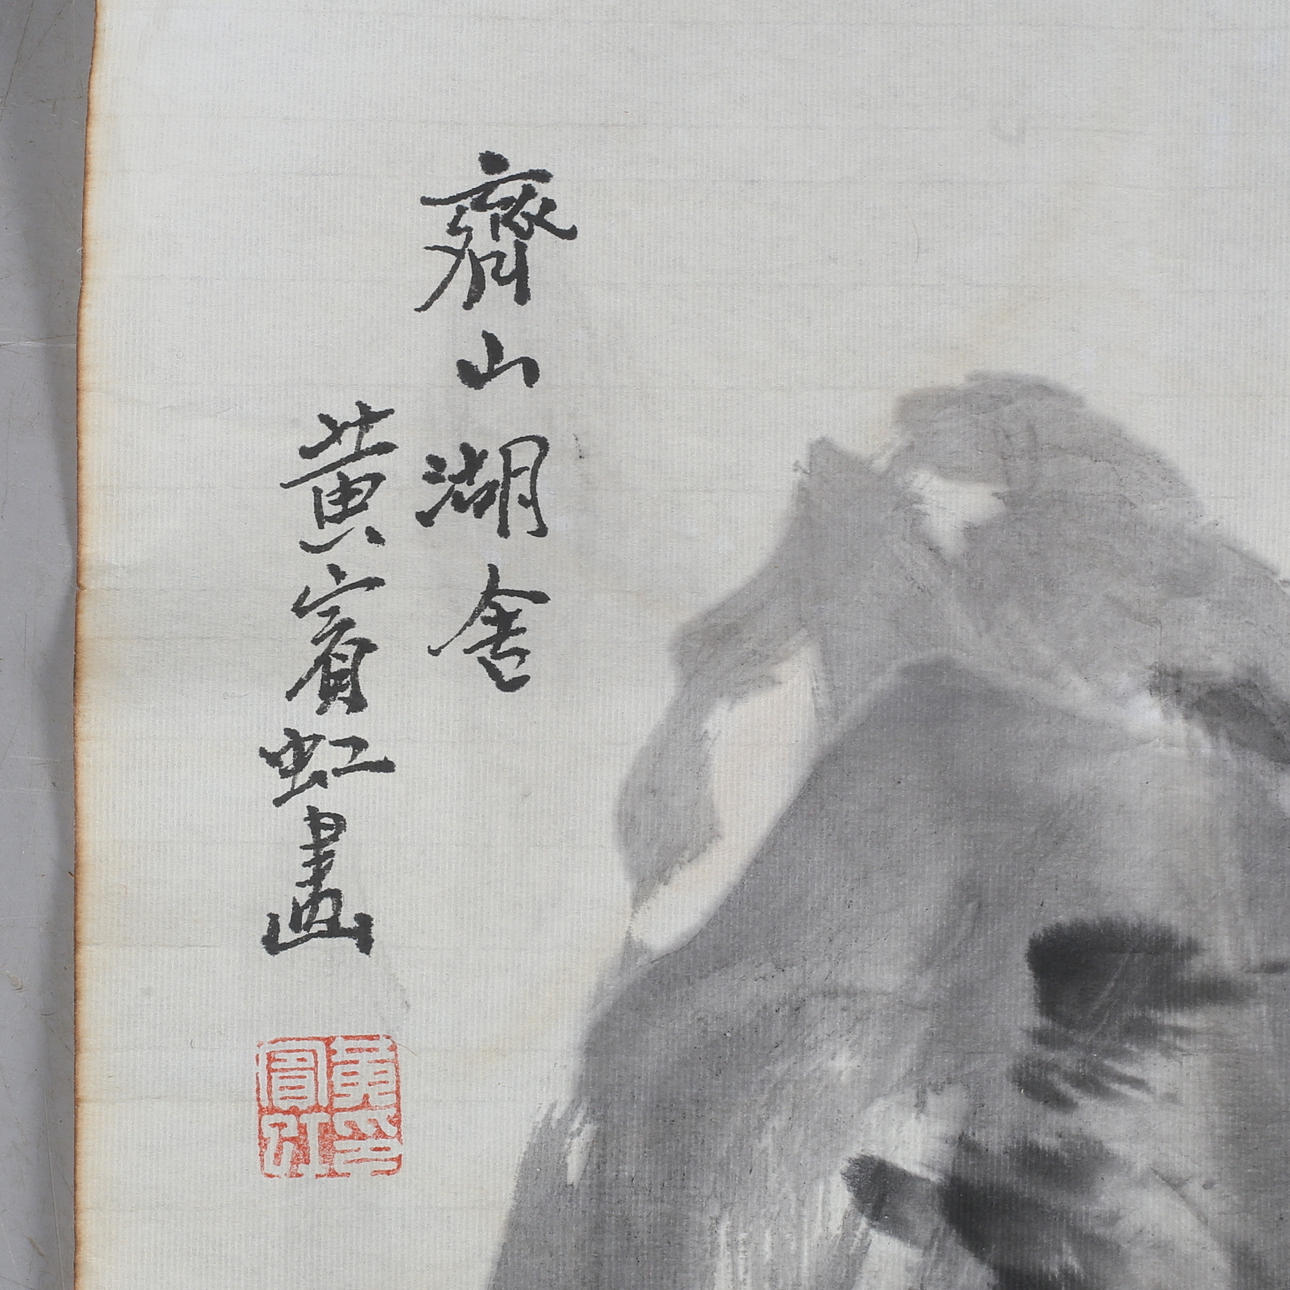 齊山湖舍
黃賓虹畫
黃印
賓虹